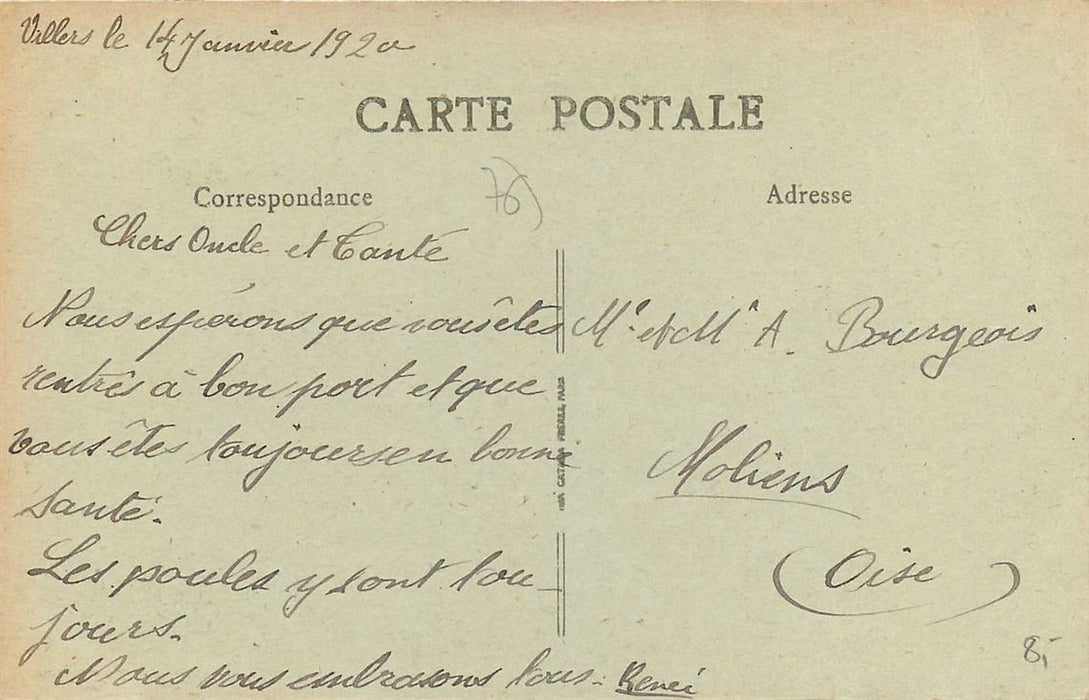 Villers le 14 Janvier 1920
CARTE POSTALE
Correspondance
Chers Oncle et Tante
Nous espérons que vous êtes
rentrés à bon port et que
vous êtes toujours en bonne
santé.
Les poules y sont tou-
jours.
Nous vous embrasons tous. René
Adresse
Me et Mr A. Bourgeois
Moliens
(Oise)
FRÈRES, PARIS
8,-